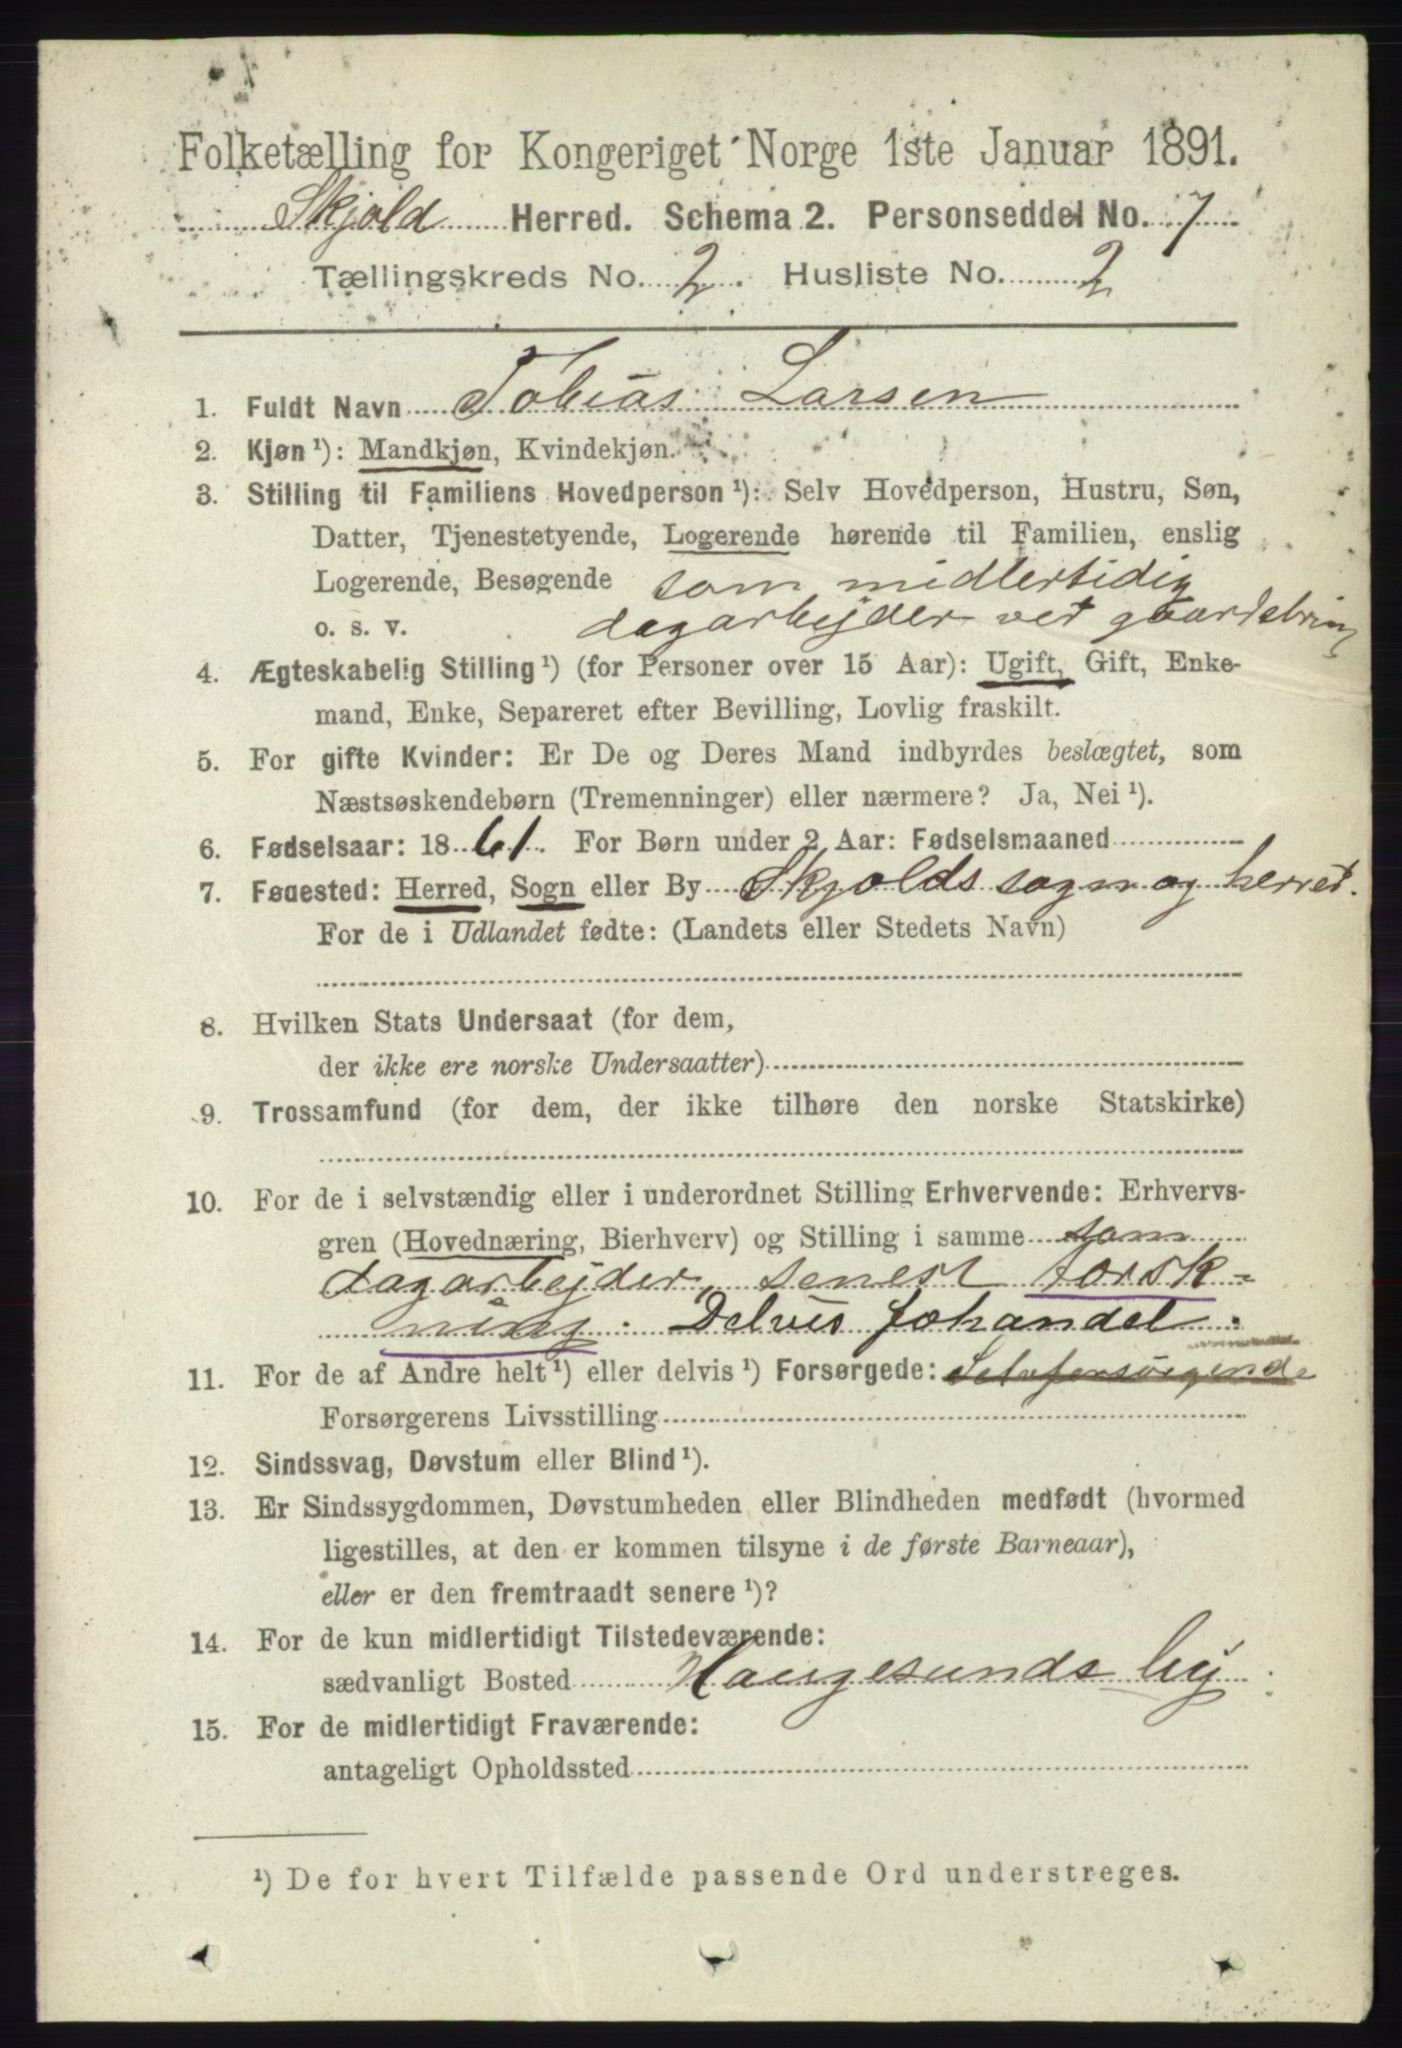 Folketælling for Kongeriget Norge 1ste Januar 1891.
Skjold Herred. Schema 2. Personseddel No. 7
Tællingskreds No. 2. Husliste No. 2
1. Fuldt Navn Tobias Larsen
2. Kjøn ¹): Mandkjøn, Kvindekjøn.
3. Stilling til Familiens Hovedperson ¹): Selv Hovedperson, Hustru, Søn,
Datter, Tjenestetyende, Logerende hørende til Familien, enslig
Logerende, Besøgende som midlertidig
o. s. v. dagarbejder ved gaardsbrug
4. Ægteskabelig Stilling ¹) (for Personer over 15 Aar): Ugift, Gift, Enke-
mand, Enke, Separeret efter Bevilling, Lovlig fraskilt.
5. For gifte Kvinder: Er De og Deres Mand indbyrdes beslægtet, som
Næstsøskendebørn (Tremenninger) eller nærmere? Ja, Nei ¹).
6. Fødselsaar: 1861. For Børn under 2 Aar: Fødselsmaaned
7. Fødested: Herred, Sogn eller By Skjolds sogn og herred.
For de i Udlandet fødte: (Landets eller Stedets Navn)
8. Hvilken Stats Undersaat (for dem,
der ikke ere norske Undersaatter)
9. Trossamfund (for dem, der ikke tilhøre den norske Statskirke)
10. For de i selvstændig eller i underordnet Stilling Erhvervende: Erhvervs-
gren (Hovednæring, Bierhverv) og Stilling i samme som
dagarbejder, senest torsk-
ning. Delvis fæhandel.
11. For de af Andre helt ¹) eller delvis ¹) Forsørgede: Selvforsørgende
Forsørgerens Livsstilling
12. Sindssvag, Døvstum eller Blind ¹).
13. Er Sindssygdommen, Døvstumheden eller Blindheden medfødt (hvormed
ligestilles, at den er kommen tilsyne i de første Barneaar),
eller er den fremtraadt senere ¹)?
14. For de kun midlertidigt Tilstedeværende:
sædvanligt Bosted Haugesunds by
15. For de midlertidigt Fraværende:
antageligt Opholdssted
¹) De for hvert Tilfælde passende Ord understreges.